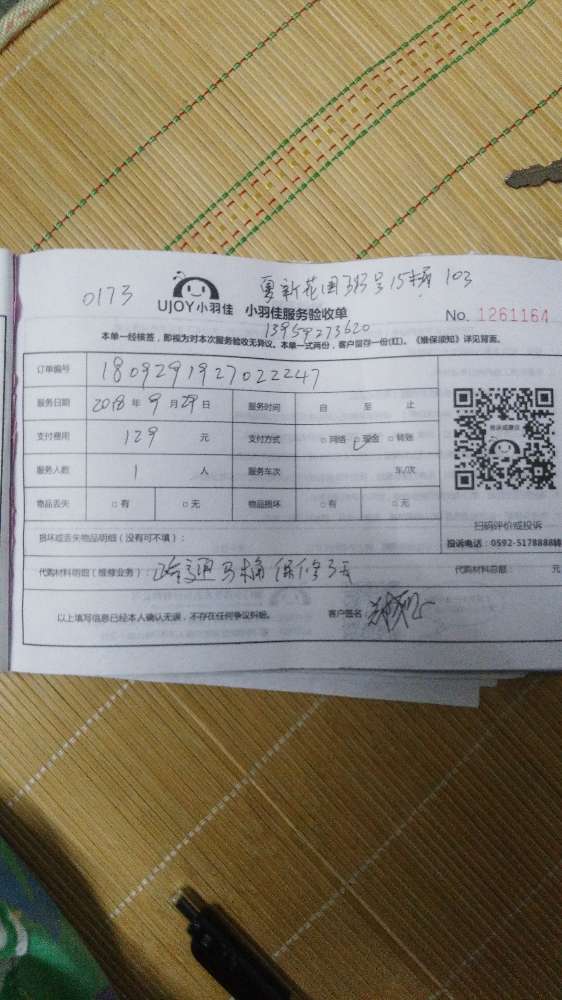 0173
夏新花园
103
UJOY小羽佳 小羽佳服务验收单
No. 1261164
13959273620
本单一经核签，即视为对本次服务验收无异议。本单一式两份，客户留存一份(红)。《维保须知》详见背面。
订单编号 1809291927022247
服务日期 2018 年 9 月 29 日 服务时间 自 至 止
支付费用 129 元 支付方式 □网络 □现金 □转账
服务人数 1 人 服务车次 车/次
物品丢失 □有 □无 物品损坏 □有 □无
扫码评价或投诉
投诉电话：0592-5178888转
损坏或丢失物品明细（没有可不填）：
代购材料明细(维修业务)： 疏通马桶 保修3天 代购材料总额： 元
以上填写信息已经本人确认无误，不存在任何争议纠纷。 客户签名：